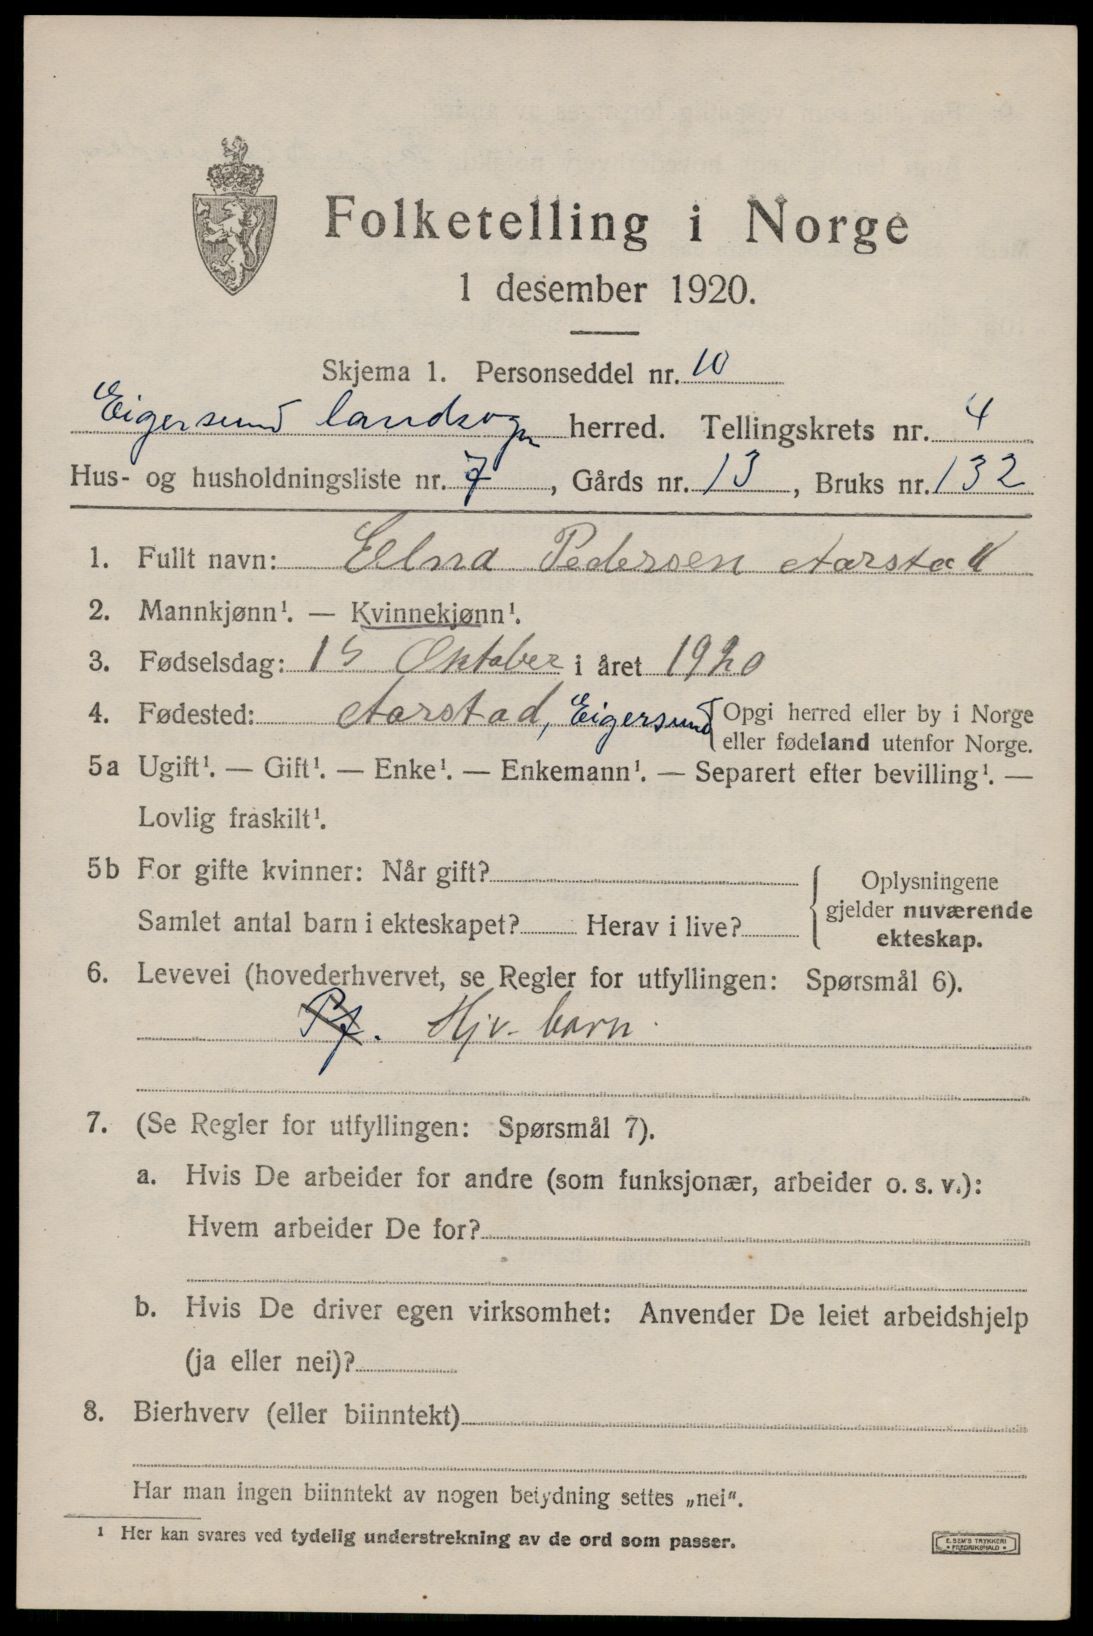 Folketelling i Norge
1 desember 1920.
Skjema 1. Personseddel nr. 10
Eigersund landsogn herred. Tellingskrets nr. 4
Hus- og husholdningsliste nr. 7, Gårds nr. 13, Bruks nr. 132
1. Fullt navn: Elna Pedersen Aarstad
2. Mannkjønn¹. — Kvinnekjønn¹.
3. Fødselsdag: 15 Oktober i året 1920
4. Fødested: Aarstad, Eigersund { Opgi herred eller by i Norge
eller fødeland utenfor Norge.
5a Ugift¹. — Gift¹. — Enke¹. — Enkemann¹. — Separert efter bevilling¹. —
Lovlig fraskilt¹.
5b For gifte kvinner: Når gift?
Samlet antal barn i ekteskapet? Herav i live?
{ Oplysningene
gjelder nuværende
ekteskap.
6. Levevei (hovederhvervet, se Regler for utfyllingen: Spørsmål 6).
Hjv. barn.
7. (Se Regler for utfyllingen: Spørsmål 7).
a. Hvis De arbeider for andre (som funksjonær, arbeider o. s. v.):
Hvem arbeider De for?
b. Hvis De driver egen virksomhet: Anvender De leiet arbeidshjelp
(ja eller nei)?
8. Bierhverv (eller biinntekt)
Har man ingen biinntekt av nogen betydning settes „nei".
¹ Her kan svares ved tydelig understrekning av de ord som passer.
E. SEM'S TRYKKERI
• FREDRIKSHALD •